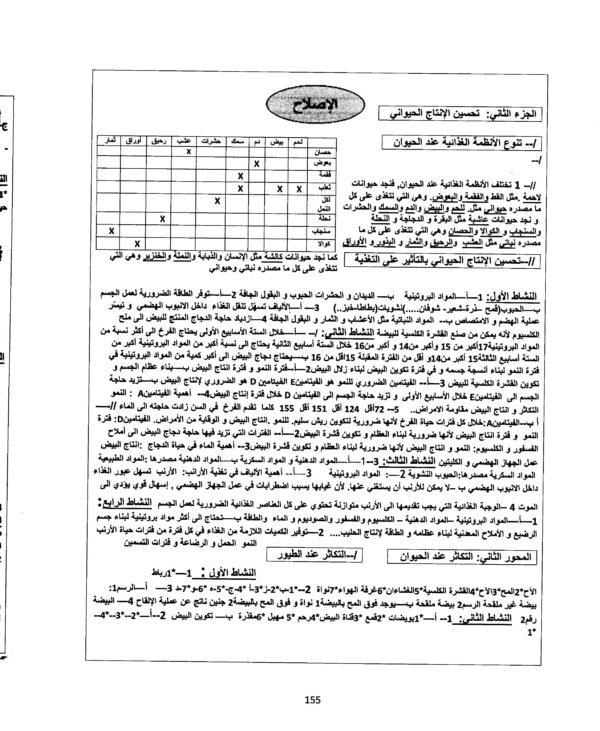 الإصلاح
الجزء الثاني: تحسين الإنتاج الحيواني
/-- تنوع الأنظمة الغذائية عند الحيوان
--/
لحم بيض دم سمك حشرات عشب رحيق أوراق ثمار
حصان x
بعوض x
فقمة x
ثعلب x x x
آكل النمل x
نحلة x
سنجاب x
كوالا x
//-- 1 تختلف الأنظمة الغذائية عند الحيوان, فنجد حيوانات
لاحمة .مثل القط والفقمة والبعوض. وهي التي تتغذى على كل
ما مصدره حيواني مثل. اللحم والبيض والدم والسمك والحشرات
و نجد حيوانات عاشبة مثل البقرة و الدجاجة و النحلة
والسنجاب و الكوالا والحصان وهي التي تتغذى على كل ما
مصدره نباتي مثل العشب والرحيق والثمار و البذور و الأوراق
كما نجد حيوانات كالشة مثل الإنسان والذبابة والنملة والخنزير وهي التي
تتغذى على كل ما مصدره نباتي وحيواني
//--تحسين الإنتاج الحيواني بالتأثير على التغذية
النشاط الأول: 1—أ—المواد البروتينية ب— الديدان و الحشرات الحبوب و البقول الجافة 2—أ—توفر الطاقة الضرورية لعمل الجسم
ب—الحبوب(قمح –ذرة–شعير- شوفان.....)نشويات(بطاطا-خبز..) 3— أ—الألياف تسهل تنقل الغذاء داخل الانبوب الهضمي و تيسر
عملية الهضم و الامتصاص ب-- المواد النباتية مثل الأعشاب و الثمار و البقول الجافة 4—ازدياد حاجة الدجاج المنتج للبيض الى ملح
الكلسيوم لأنه يمكن من صنع القشرة الكلسية للبيضة النشاط الثاني: /-- أ—خلال الستة الأسابيع الأولى يحتاج الفرخ الى أكثر نسبة من
المواد البروتينية 17أكبر من 15 وأكبر من14 و أكبر من16 خلال الستة أسابيع الثانية يحتاج الى نسبة أكبر من المواد البروتينية أكبر من
الستة أسابيع الثالثة 15 أكبر من14و أقل من الفترة المقبلة 15اقل من 16 ب—يحتاج دجاج البيض الى أكبر كمية من المواد البروتينية في
فترة النمو لبناء أنسجة جسمه و في فترة تكوين البيض لبناء زلال البيض2—أ—فترة النمو و فترة انتاج البيض ب—بناء عظام الجسم و
تكوين القشرة الكلسية للبيض 3—أ-- الفيتامين الضروري للنمو هو الفيتامينE الفيتامينD هو الضروري لإنتاج البيض ب—تزيد حاجة
الجسم الى الفيتامينE خلال الأسابيع الأولى و تزيد حاجة الجسم الى الفيتامين D خلال فترة إنتاج البيض4-- أهمية الفيتامينA : النمو
التكاثر و انتاج البيض مقاومة الامراض.. 5-- 72أقل 124 أقل 151 أقل 155 كلما تقدم الفرخ في السن زادت حاجته الى الماء //—
أ ب—الفيتامينA:خلال كل فترات حياة الفرخ لأنها ضرورية لتكوين ريش سليم. للنمو .انتاج البيض و الوقاية من الأمراض. الفيتامينD: فترة
النمو و فترة انتاج البيض لأنها ضرورية لبناء العظام و تكوين قشرة البيض2—أ-- الفترات التي تزيد فيها حاجة دجاج البيض الى أملاح
الفسفور و الكلسيوم: النمو و انتاج البيض لأنها ضرورية لبناء العظام و تكوين قشرة البيض3-- أهمية الماء في حياة الدجاج :انتاج البيض
عمل الجهاز الهضمي و الكليتين النشاط الثالث: 3--1—أ—المواد الدهنية و المواد السكرية ب—المواد الدهنية مصدرها :المواد الطبيعية
المواد السكرية مصدرها:الحبوب النشوية 2—: المواد البروتينية 3—أ-- أهمية الألياف في تغذية الأرانب: الأرنب تسهل عبور الغذاء
داخل الانبوب الهضمي ب –لا يمكن للأرنب أن يستغني عنها. لأن غيابها يسبب اضطرابات في عمل الجهاز الهضمي , إسهال قوي يؤدي الى
الموت 4 –الوجبة الغذائية التي يجب تقديمها الى الأرنب متوازنة تحتوي على كل العناصر الغذائية الضرورية لعمل الجسم النشاط الرابع:
1—أ—المواد البروتينية –المواد الدهنية – الكلسيوم والفسفور والصوديوم و الماء والطاقة ب—تحتاج الى أكثر مواد بروتينية لبناء جسم
الرضيع و الأملاح المعدنية لبناء عظامه و الطاقة لإنتاج الحليب.... 2—توفير الكميات اللازمة من الغذاء في كل فترة من فترات حياة الأرنب
النمو الحمل و الرضاعة و فترات التسمين
المحور الثاني: التكاثر عند الحيوان
/--التكاثر عند الطيور
النشاط الأول : 1—*1رباط
الأح*2المح*3الأح*4القشرة الكلسية*5الغشاءان*6غرفة الهواء*7نواة 2--*1-ب*2-ز*3-أ *4-ج-*5-ه *6-و*7-د 3— أ—الرسم1:
بيضة غير ملقحة الرسم2 بيضة ملقحة ب—يوجد فوق المح بالبيضة1 نواة و فوق المح بالبيضة2 جنين ناتج عن عملية الإلقاح 4— البيضة
رقم2 النشاط الثاني: 1-- أ—*1بويضات *2قمع *3قناة البيض*4رحم *5 مهبل *6مقذرة ب— تكوين البيض 2—أ—*2--*3--*4--
*1
155